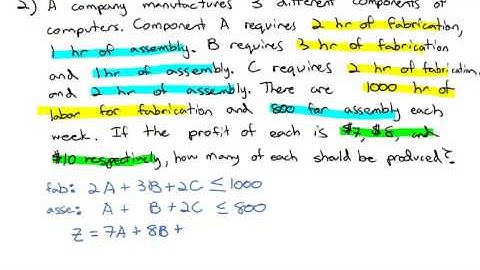 2) A company manufactures 3 different components of
computers. Component A requires 2 hr of fabrication,
1 hr of assembly. B requires 3 hr of fabrication
and 1hr of assembly. C requires 2 hr of fabrication,
and 2 hr of assembly. There are 1000 hr of
labor for fabrication and 800 for assembly each
week. If the profit of each is $7, $8, and
$10 respectively, how many of each should be produced?
fab: 2A + 3B + 2C ≤ 1000
asse: A + B + 2C ≤ 800
Z = 7A + 8B +